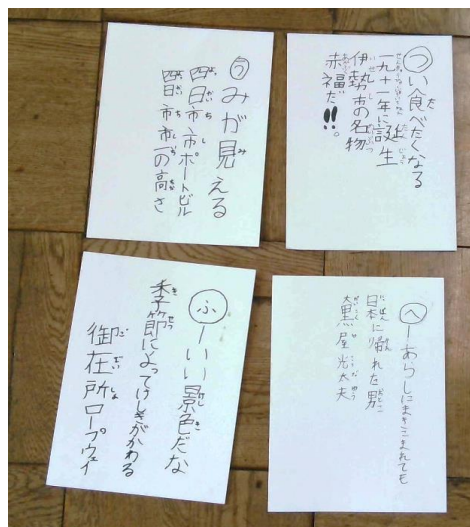 つい食べたくなる
一九十一年に誕生
伊勢市の名物
赤福だ!!。
うみが見える
四日市市ポートビル
四日市市一の高さ
へーあらしにまきこまれても
日本に帰れた男
大黒屋光太夫
ふーいい景色だな
季節によってけしきがかわる
御在所ロープウェイ